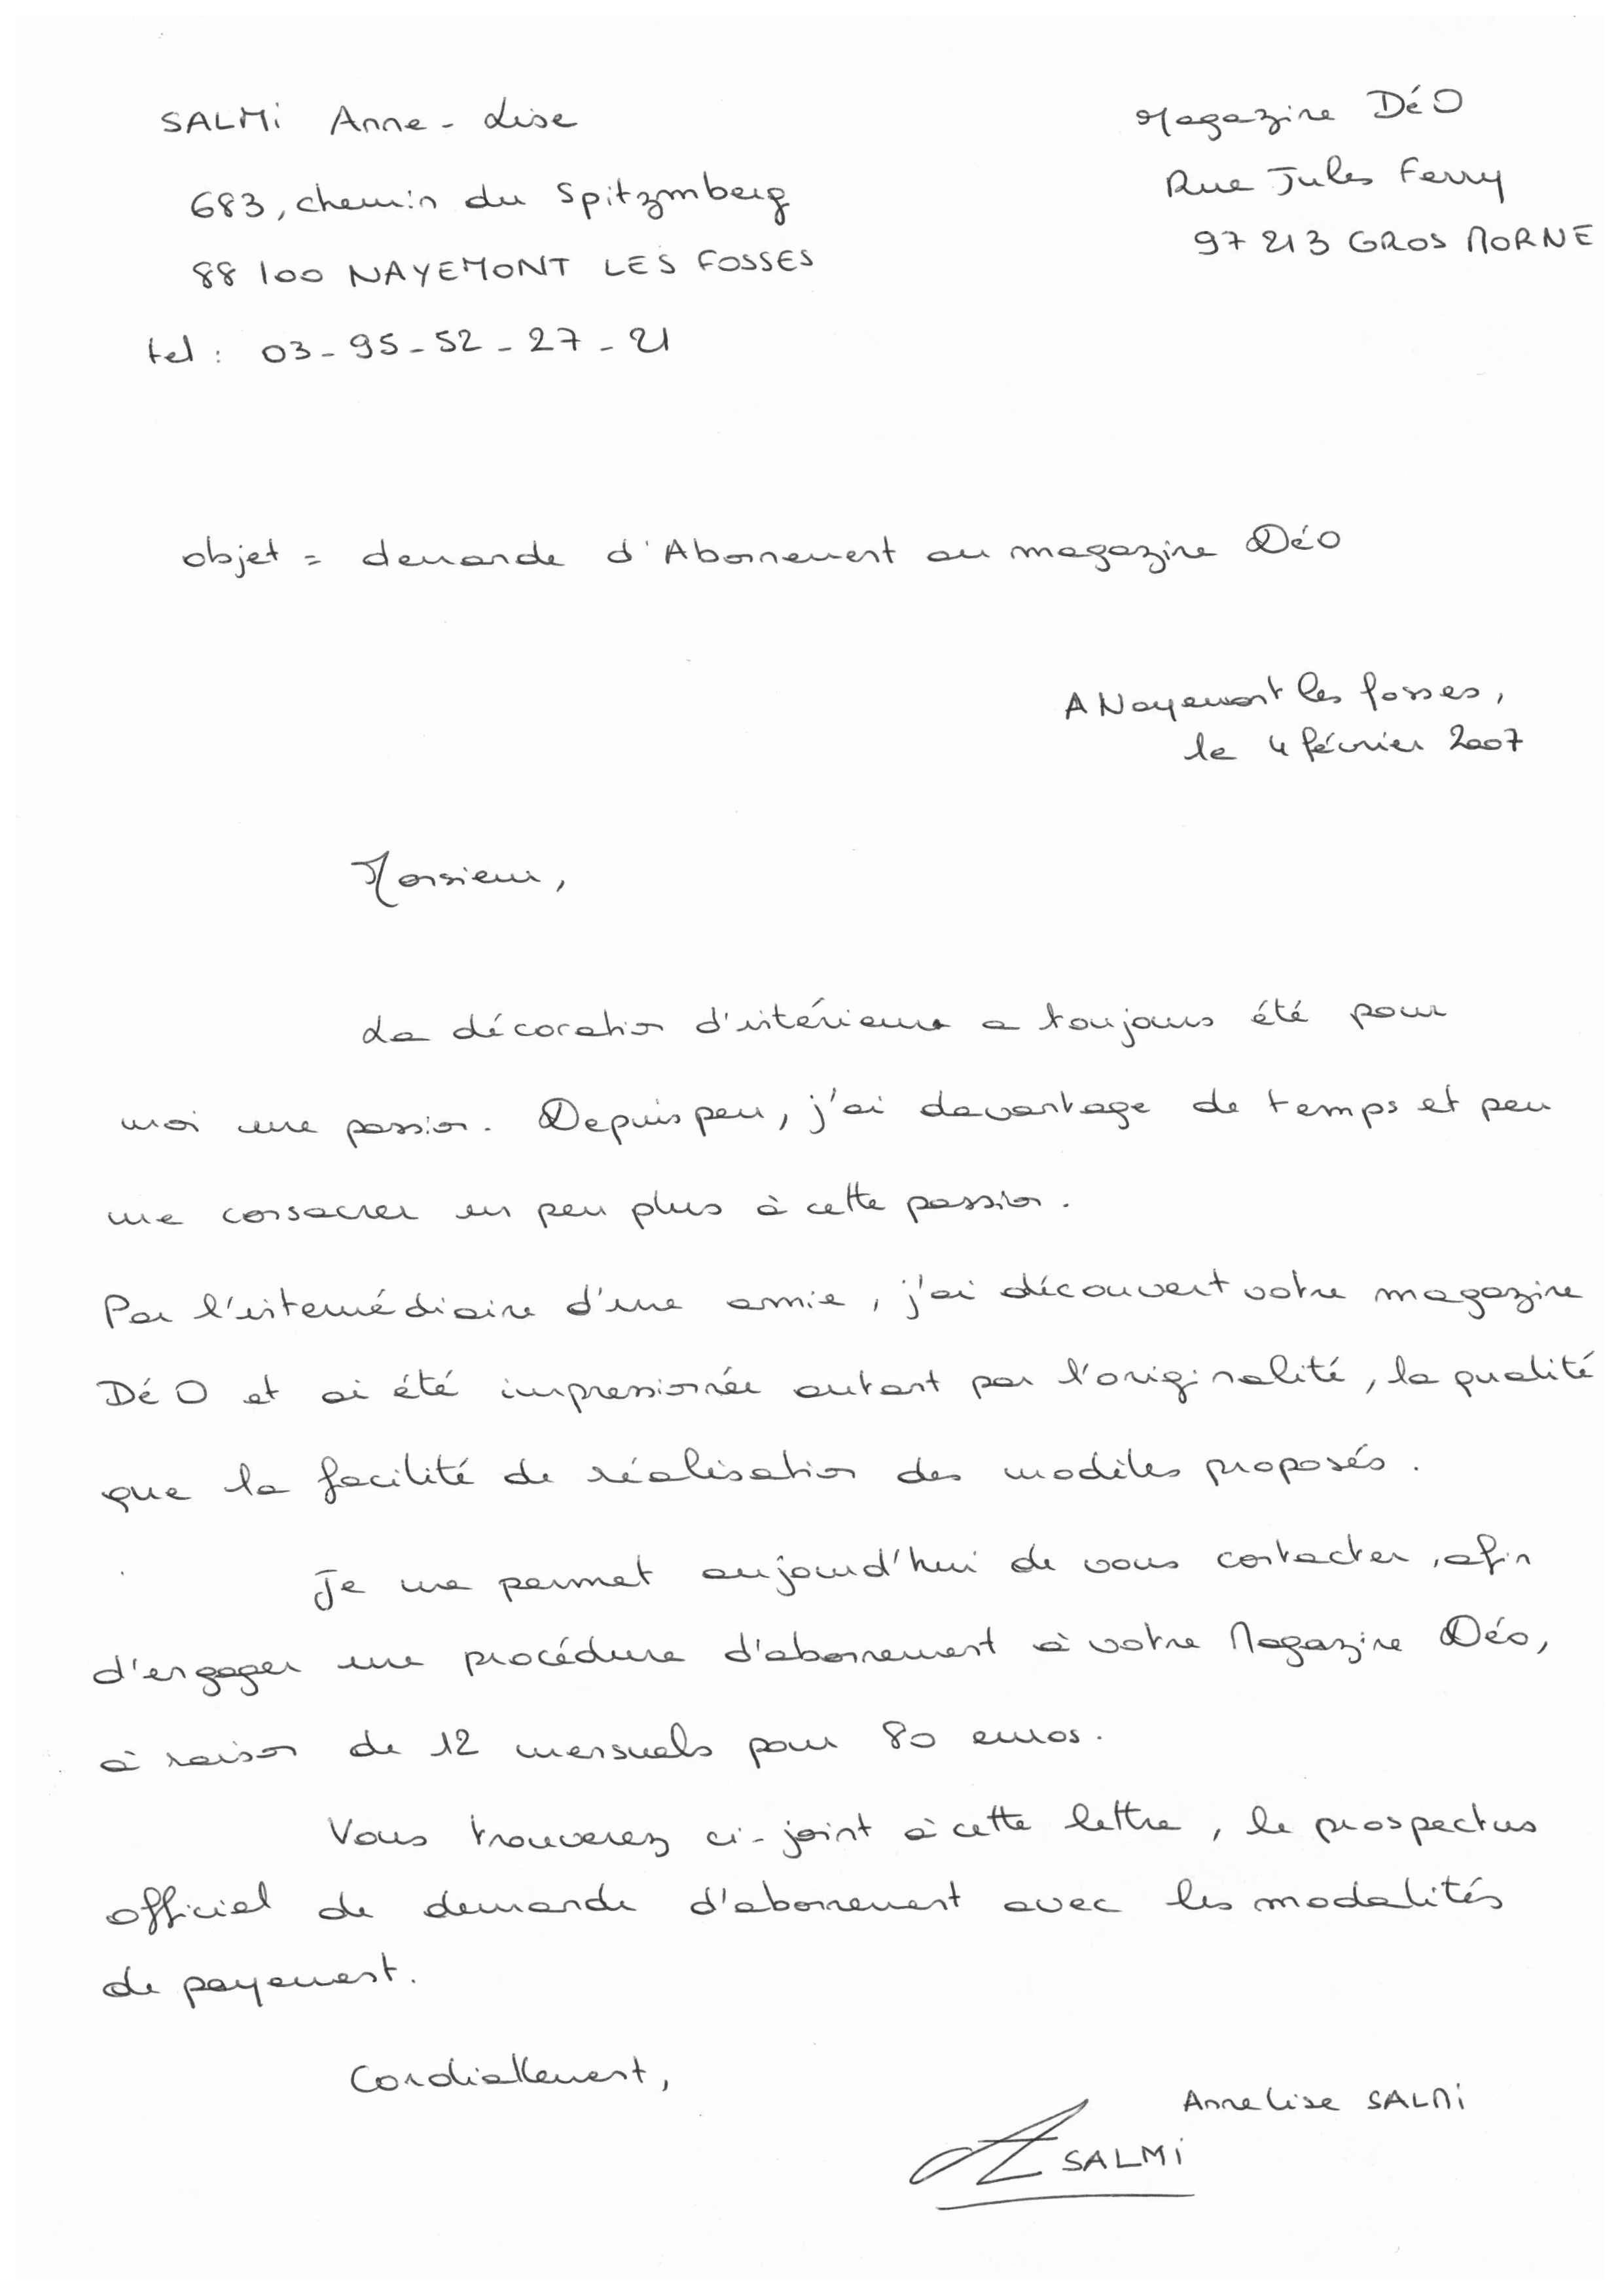 SALMi Anne-Lise
683, chemin du Spitzmberg
88 100 NAYEMONT LES FOSSES
tel : 03-95-52-27-21
Magazine DéO
Rue Jules Ferry
97 213 GROS MORNE
objet = demande d'Abonnement au magazine DéO
A Nayemont les fosses,
le 4 février 2007
Monsieur,
La décoration d'intérieur a toujours été pour
moi une passion. Depuis peu, j'ai davantage de temps et peu
me consacrer un peu plus à cette passion.
Par l'intermédiaire d'une amie, j'ai découvert votre magazine
DéO et ai été impressionnée autant par l'originalité, la qualité
que la facilité de réalisation des modèles proposés.
Je me permet aujourd'hui de vous contacter, afin
d'engager une procédure d'abonnement à votre Magazine Déo,
à raison de 12 mensuels pour 80 euros.
Vous trouverez ci-joint à cette lettre, le prospectus
officiel de demande d'abonnement avec les modalités
de payement.
Cordiallement,
Annelise SALMi
AL SALMi